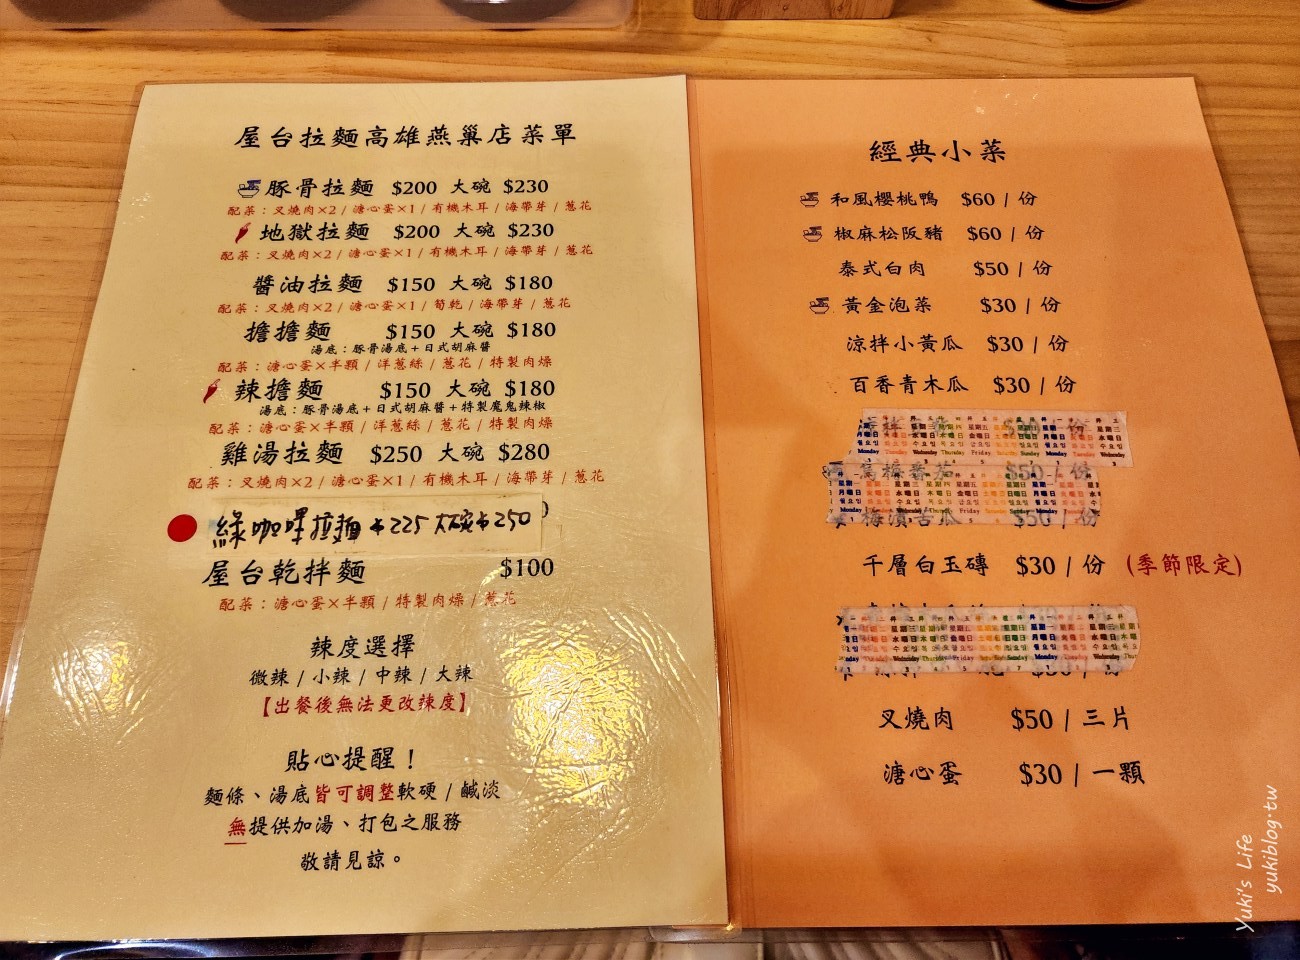 屋台拉麵高雄燕巢店菜單
豚骨拉麵 $200 大碗 $230
配菜：叉燒肉×2 / 溏心蛋×1 / 有機木耳 / 海帶芽 / 蔥花
地獄拉麵 $200 大碗 $230
配菜：叉燒肉×2 / 溏心蛋×1 / 有機木耳 / 海帶芽 / 蔥花
醬油拉麵 $150 大碗 $180
配菜：叉燒肉×2 / 溏心蛋×1 / 筍乾 / 海帶芽 / 蔥花
擔擔麵 $150 大碗 $180
湯底：豚骨湯底+日式胡麻醬
配菜：溏心蛋×半顆 / 洋蔥絲 / 蔥花 / 特製肉燥
辣擔麵 $150 大碗 $180
湯底：豚骨湯底+日式胡麻醬+特製魔鬼辣椒
配菜：溏心蛋×半顆 / 洋蔥絲 / 蔥花 / 特製肉燥
雞湯拉麵 $250 大碗 $280
配菜：叉燒肉×2 / 溏心蛋×1 / 有機木耳 / 海帶芽 / 蔥花
綠咖哩拉麵 $225 大碗$250
屋台乾拌麵 $100
配菜：溏心蛋×半顆 / 特製肉燥 / 蔥花
辣度選擇
微辣 / 小辣 / 中辣 / 大辣
【出餐後無法更改辣度】
貼心提醒！
麵條、湯底皆可調整軟硬 / 鹹淡
無提供加湯、打包之服務
敬請見諒。
經典小菜
和風櫻桃鴨 $60 / 份
椒麻松阪豬 $60 / 份
泰式白肉 $50 / 份
黃金泡菜 $30 / 份
涼拌小黃瓜 $30 / 份
百香青木瓜 $30 / 份
$50 / 份
梅漬苦瓜 $50 / 份
千層白玉磚 $30 / 份 (季節限定)
叉燒肉 $50 / 三片
溏心蛋 $30 / 一顆
Yuki's Life
yukiblog.tw